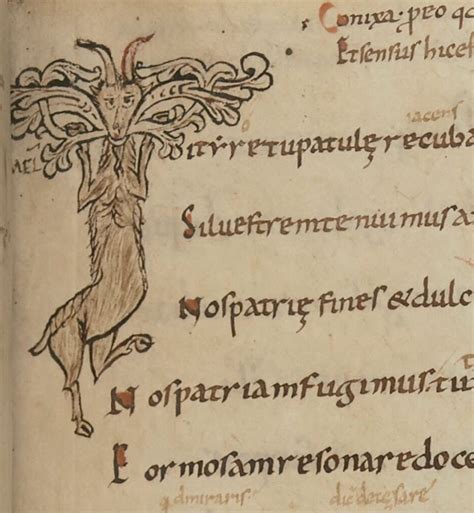 Conixa. pro eo q
Et sensus hicef
iacens
ityretupatulęrecuba
MEL
Silvestremtenuimusa
Nospatrięfines&dulc
Nospatriamfugimus.tu
Formosamresonaredoce
admiraris dic̄ detęsare